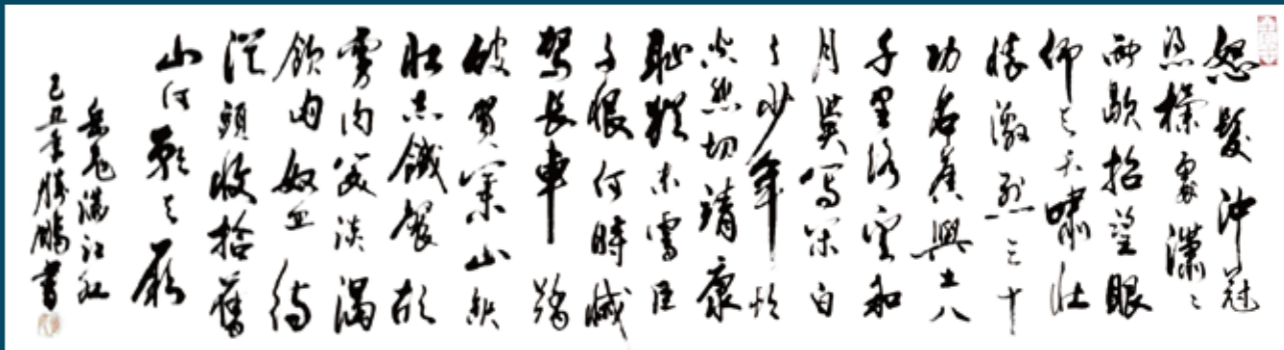 怒髮沖冠
憑欄處瀟〻
雨歇抬望眼
仰天长嘯壮
懷激烈三十
功名塵與土八
千里路雲和
月莫等闲白
了少年头
空悲切靖康
耻猶未雪臣
子恨何時滅
駕長車踏
破賀蘭山缺
壮志餓餐胡
虜肉笑談渴
飲匈奴血待
從頭收拾舊
山河朝天闕
岳飛滿江紅
己丑年勝鵬書